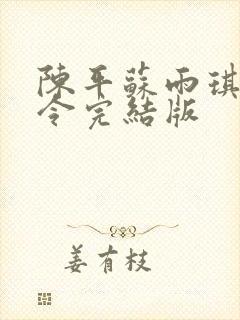 陳平蘇雨琪
令完結版
姜有枝